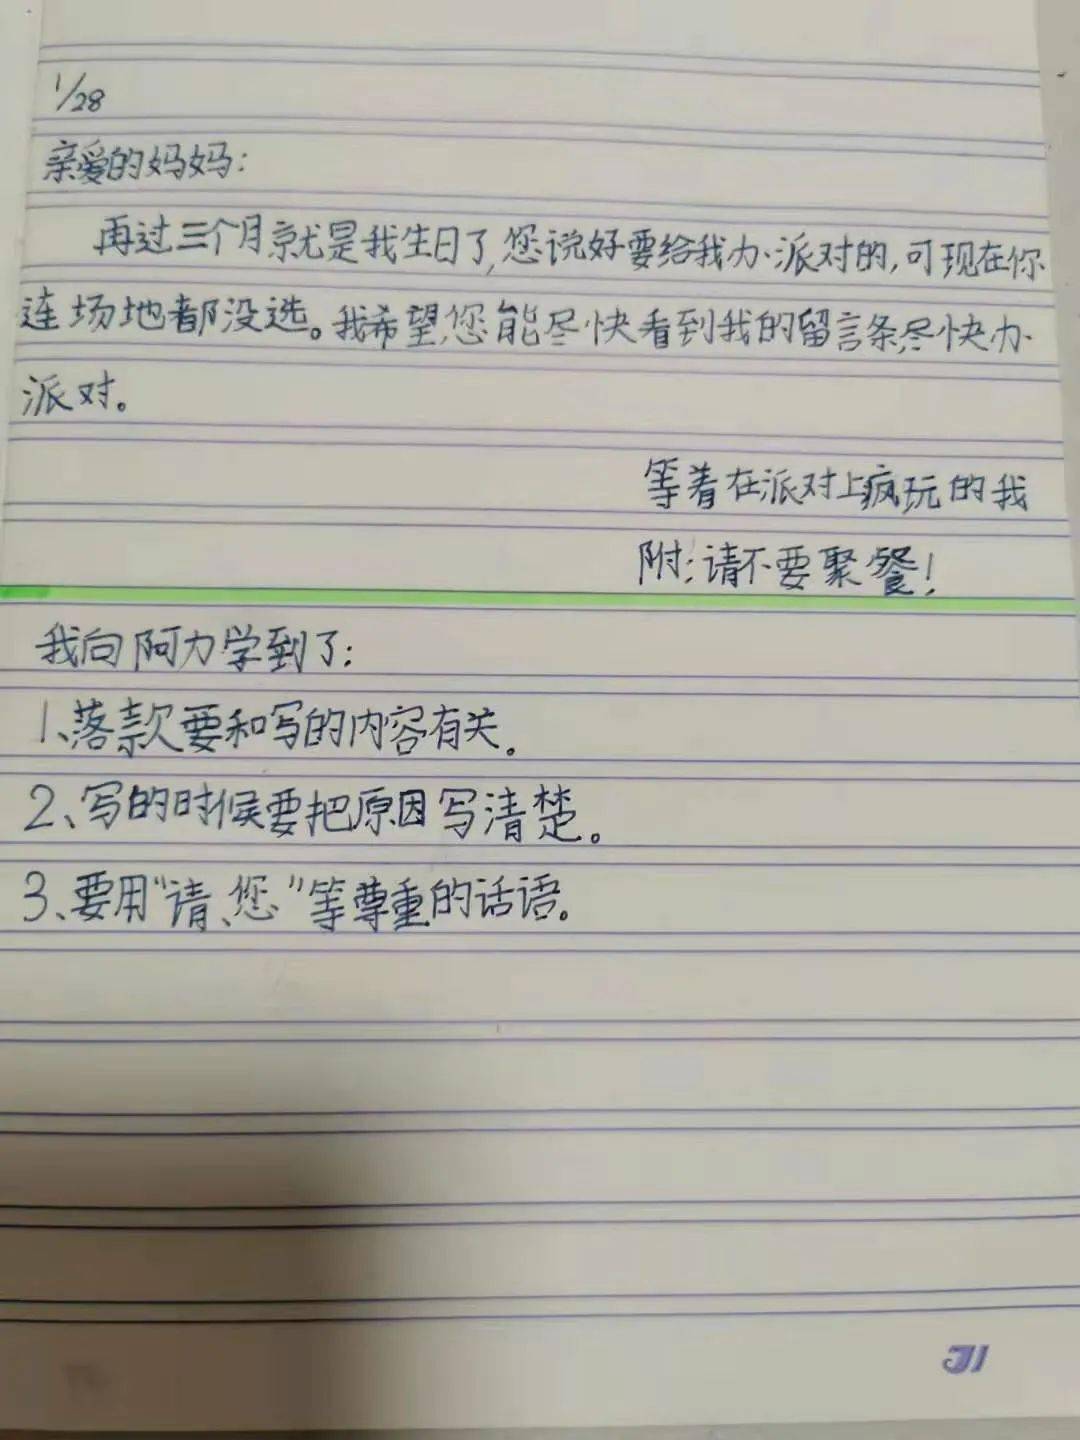 1/28
亲爱的妈妈:
再过三个月就是我生日了,您说好要给我办派对的,可现在你
连场地都没选。我希望,您能尽快看到我的留言条,尽快办
派对。
等着在派对上疯玩的我
附:请不要聚餐!
我向阿力学到了:
1、落款要和写的内容有关。
2、写的时候要把原因写清楚。
3、要用“请、您”等尊重的话语。